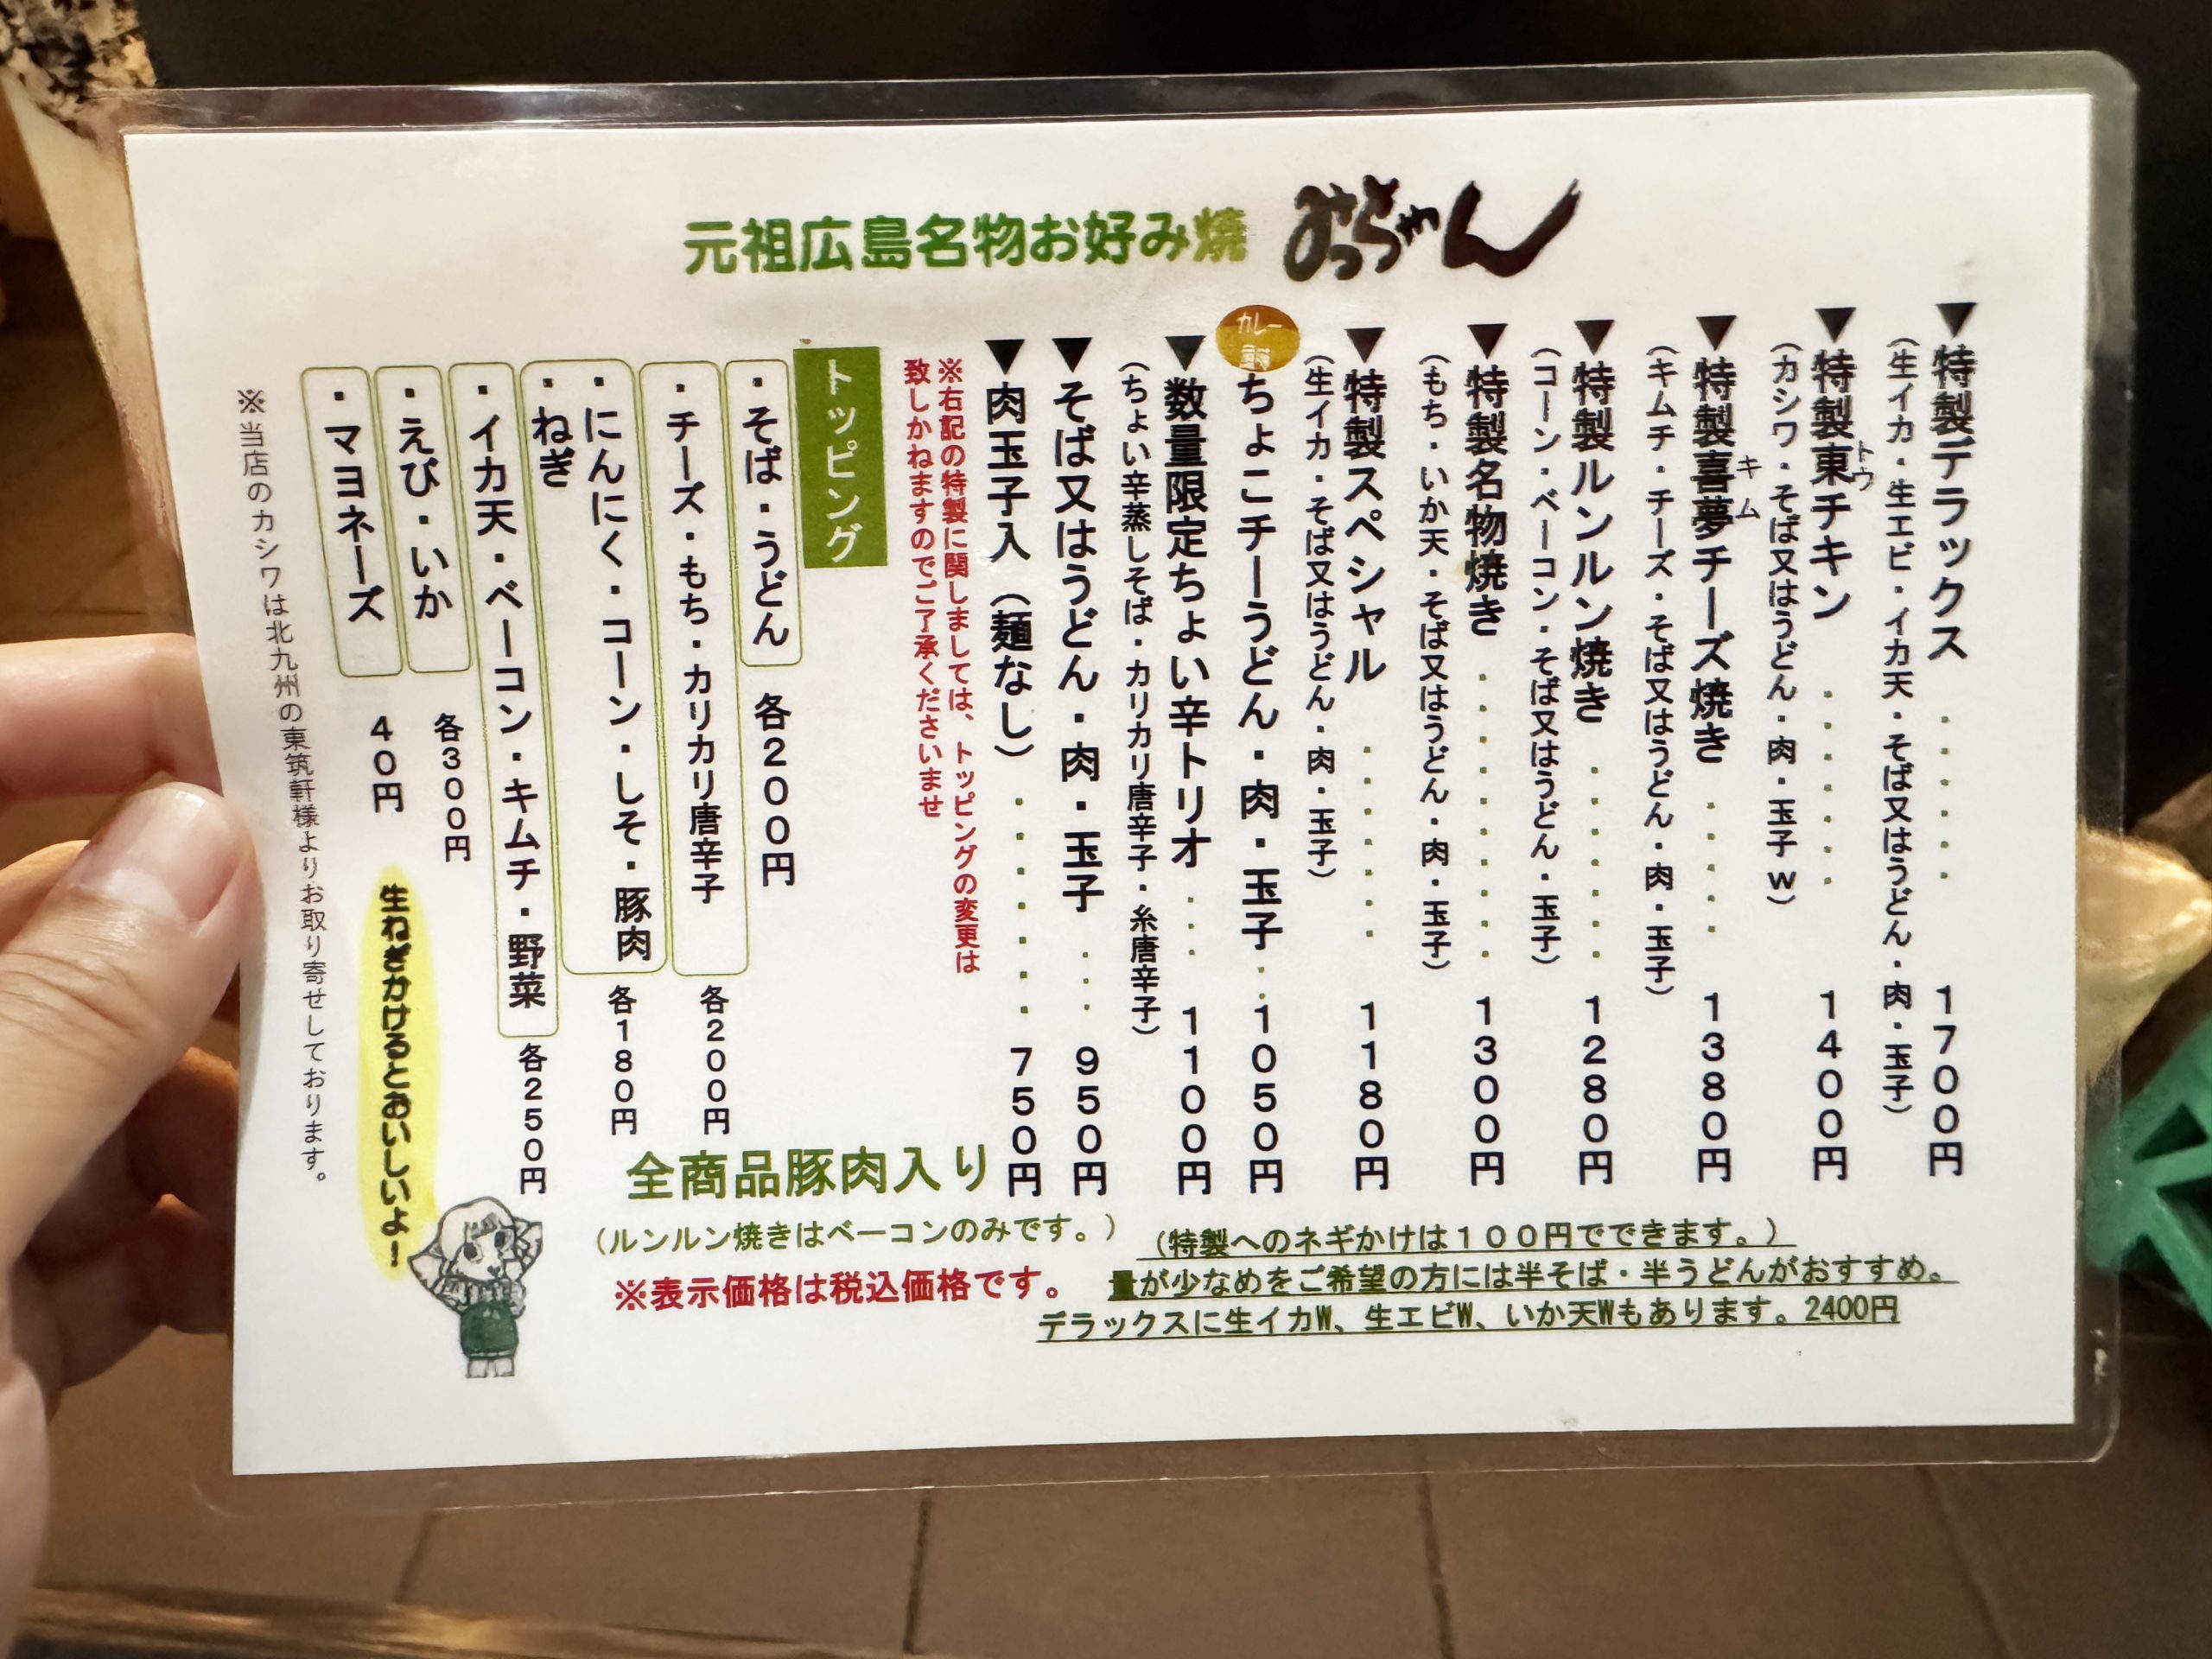 元祖広島名物お好み焼 みっちゃん
▼特製デラックス ・・・・・ 1700円
（生イカ・生エビ・イカ天・そば又はうどん・肉・玉子）
▼特製東チキン ・・・・・ 1400円
トウ
（カシワ・そば又はうどん・肉・玉子w）
▼特製喜夢チーズ焼き ・・・・ 1380円
キム
（キムチ・チーズ・そば又はうどん・肉・玉子）
▼特製ルンルン焼き ・・・・・・ 1280円
（コーン・ベーコン・そば又はうどん・玉子）
▼特製名物焼き ・・・・・・・・ 1300円
（もち・いか天・そば又はうどん・肉・玉子）
▼特製スペシャル ・・・・・・ 1180円
（生イカ・そば又はうどん・肉・玉子）
カレー
ちょこチーうどん・肉・玉子 ・・ 1050円
▼数量限定ちょい辛トリオ ・・・ 1100円
（ちょい辛蒸しそば・カリカリ唐辛子・糸唐辛子）
▼そば又はうどん・肉・玉子 ・・・ 950円
▼肉玉子入（麺なし） ・・・・・・・ 750円
※右記の特製に関しましては、トッピングの変更は
致しかねますのでご了承くださいませ
トッピング
・そば・うどん 各200円
・チーズ・もち・カリカリ唐辛子 各200円
・にんにく・コーン・しそ・豚肉
・ねぎ 各180円
・イカ天・ベーコン・キムチ・野菜 各250円
・えび・いか 各300円
・マヨネーズ 40円
生ねぎかけるとおいしいよー
※当店のカシワは北九州の東筑軒様よりお取り寄せしております。
全商品豚肉入り
（ルンルン焼きはベーコンのみです。）
※表示価格は税込価格です。
（特製へのネギかけは100円でできます。）
量が少なめをご希望の方には半そば・半うどんがおすすめ。
デラックスに生イカW、生エビW、いか天Wもあります。2400円